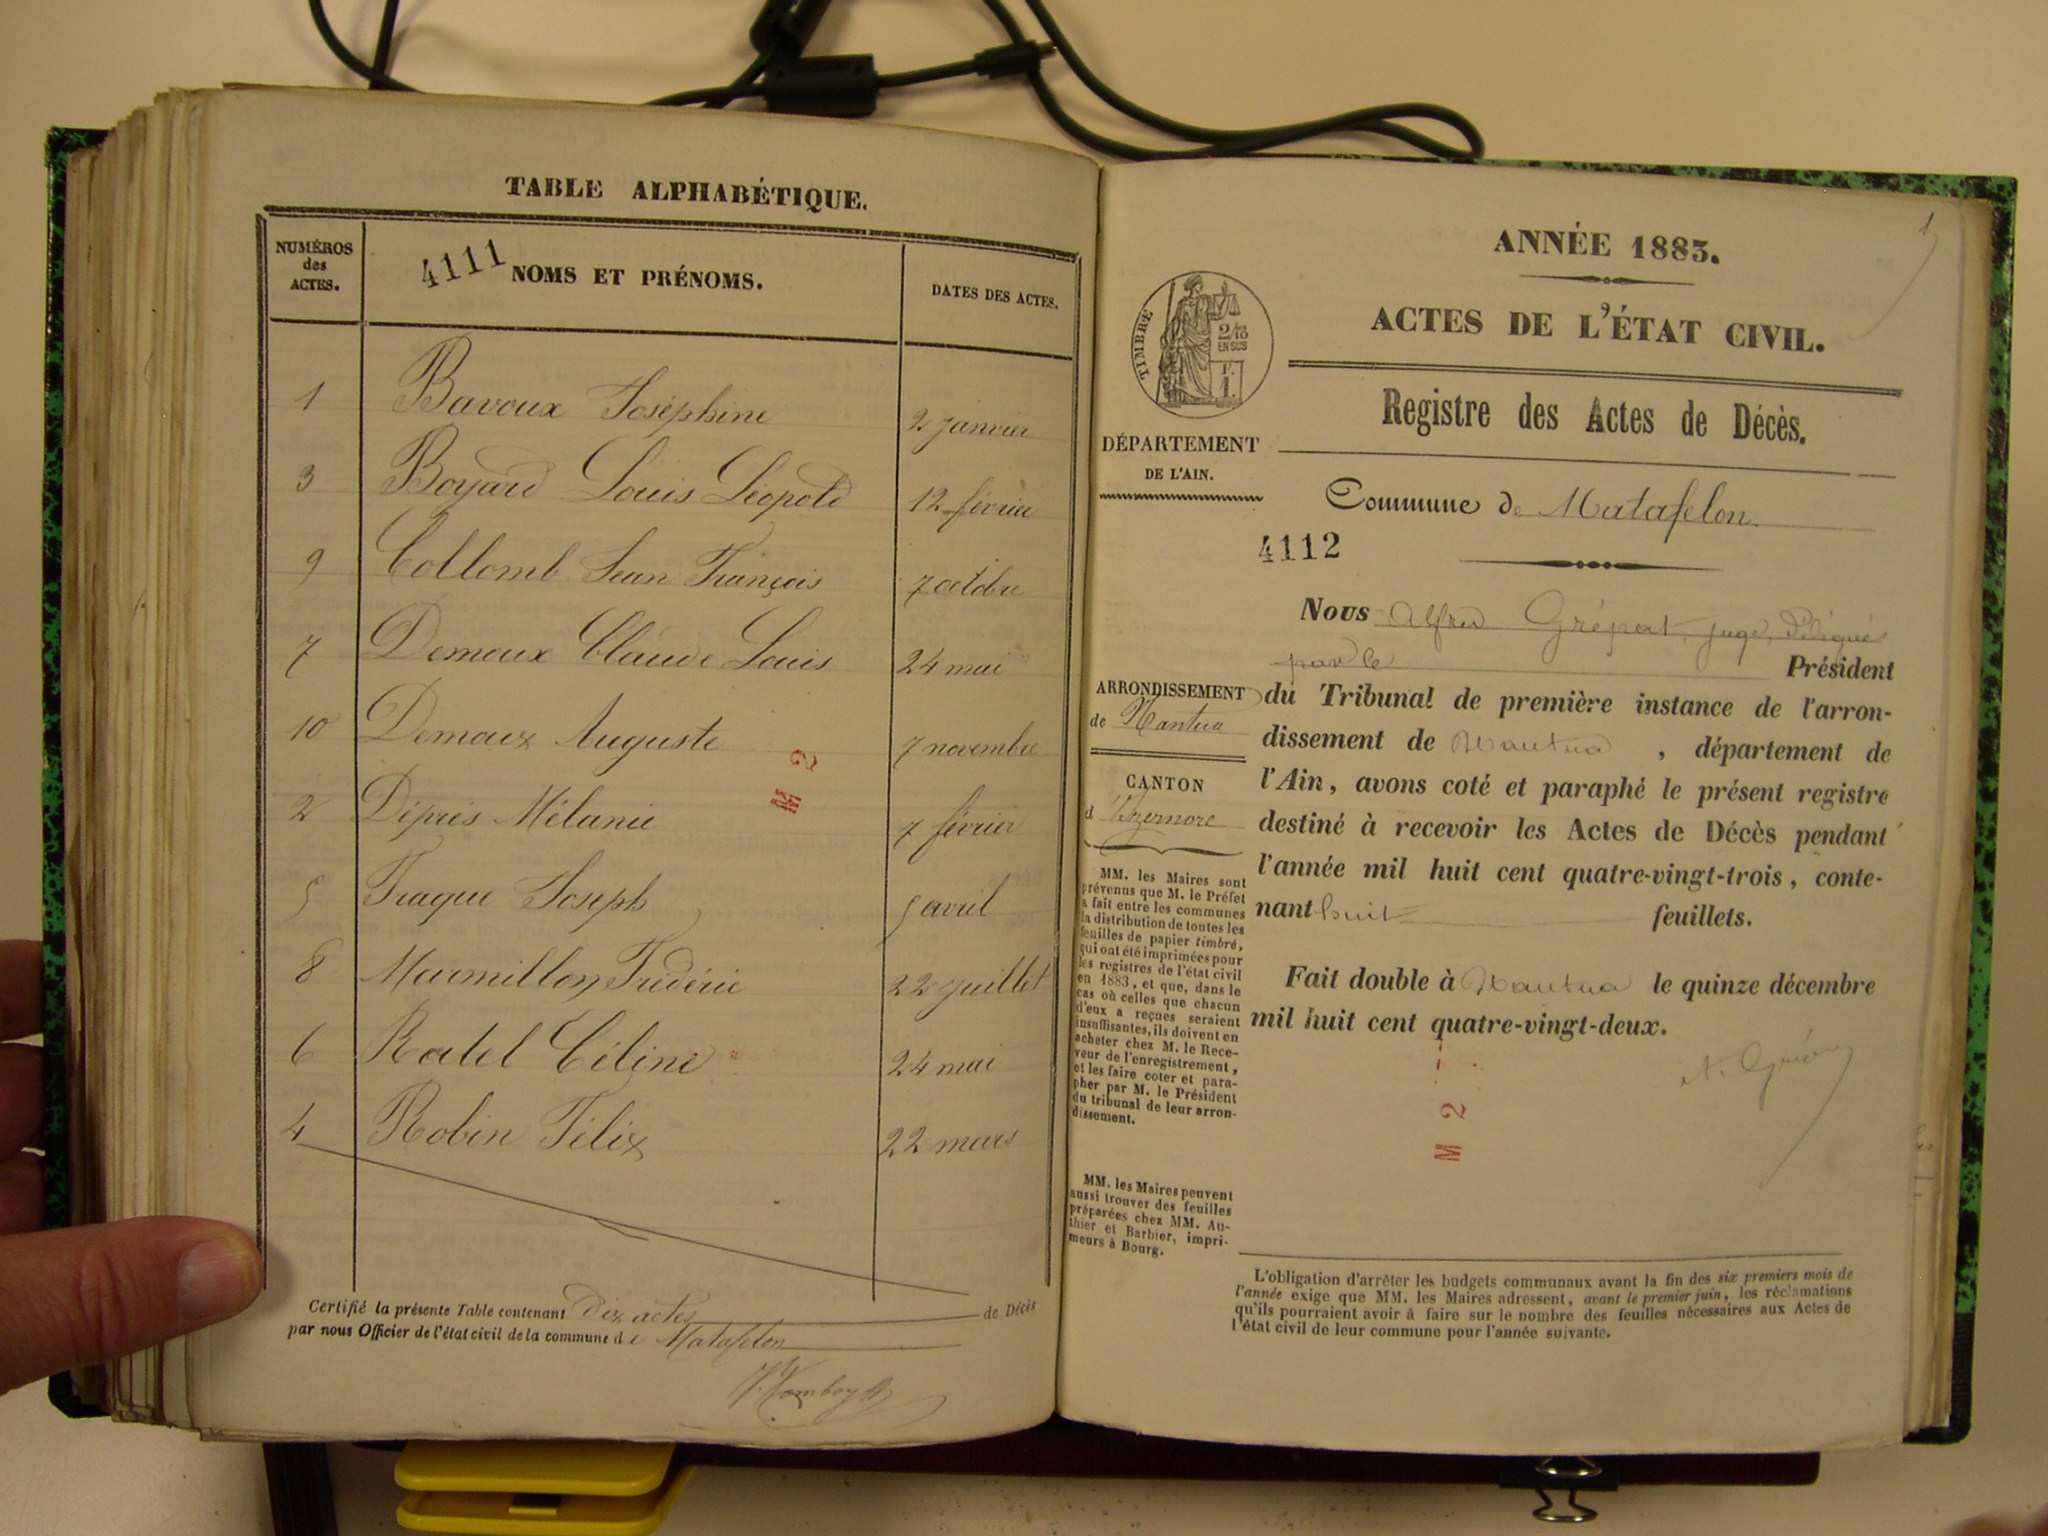 TABLE ALPHABÉTIQUE.
NUMÉROS
des
ACTES.
4111
NOMS ET PRÉNOMS.
DATES DES ACTES.
1 Bavoux Joséphine 2 janvier
3 Boyard Louis Léopold 12 février
9 Collomb Jean François 7 octobre
7 Demoux Claude Louis 24 mai
10 Demoux Auguste 7 novembre
M 2
2 Dépris Mélanie 7 février
5 Joseph 5 avril
8 Macmillon Frédéric 22 juillet
6 Ratel Céline 24 mai
4 Robin Félix 22 mars
Certifié la présente Table contenant dix actes de Décès
par nous Officier de l'état civil de la commune de Matafelon
1
ANNÉE 1883.
ACTES DE L'ÉTAT CIVIL.
TIMBRE
2/10
EN SUS
1 F.
Registre des Actes de Décès.
DÉPARTEMENT
DE L'AIN.
Commune de Matafelon
4112
Nous Alfred Grépat, juge, Délégué
par le Président
du Tribunal de première instance de l'arron-
dissement de Nantua, département de
l'Ain, avons coté et paraphé le présent registre
destiné à recevoir les Actes de Décès pendant
l'année mil huit cent quatre-vingt-trois, conte-
nant huit feuillets.
Fait double à Nantua le quinze décembre
mil huit cent quatre-vingt-deux.
M 2
ARRONDISSEMENT
de Nantua
CANTON
d'Izernore
MM. les Maires sont
prévenus que M. le Préfet
a fait entre les communes
la distribution de toutes les
feuilles de papier timbré,
qui ont été imprimées pour
les registres de l'état civil
en 1883, et que, dans le
cas où celles que chacun
d'eux a reçues seraient
insuffisantes, ils doivent en
acheter chez M. le Rece-
veur de l'enregistrement,
et les faire coter et para-
pher par M. le Président
du tribunal de leur arron-
dissement.
MM. les Maires peuvent
aussi trouver des feuilles
préparées chez MM. Au-
thier et Barbier, impri-
meurs à Bourg.
L'obligation d'arrêter les budgets communaux avant la fin des six premiers mois de
l'année exige que MM. les Maires adressent, avant le premier juin, les réclamations
qu'ils pourraient avoir à faire sur le nombre des feuilles nécessaires aux Actes de
l'état civil de leur commune pour l'année suivante.